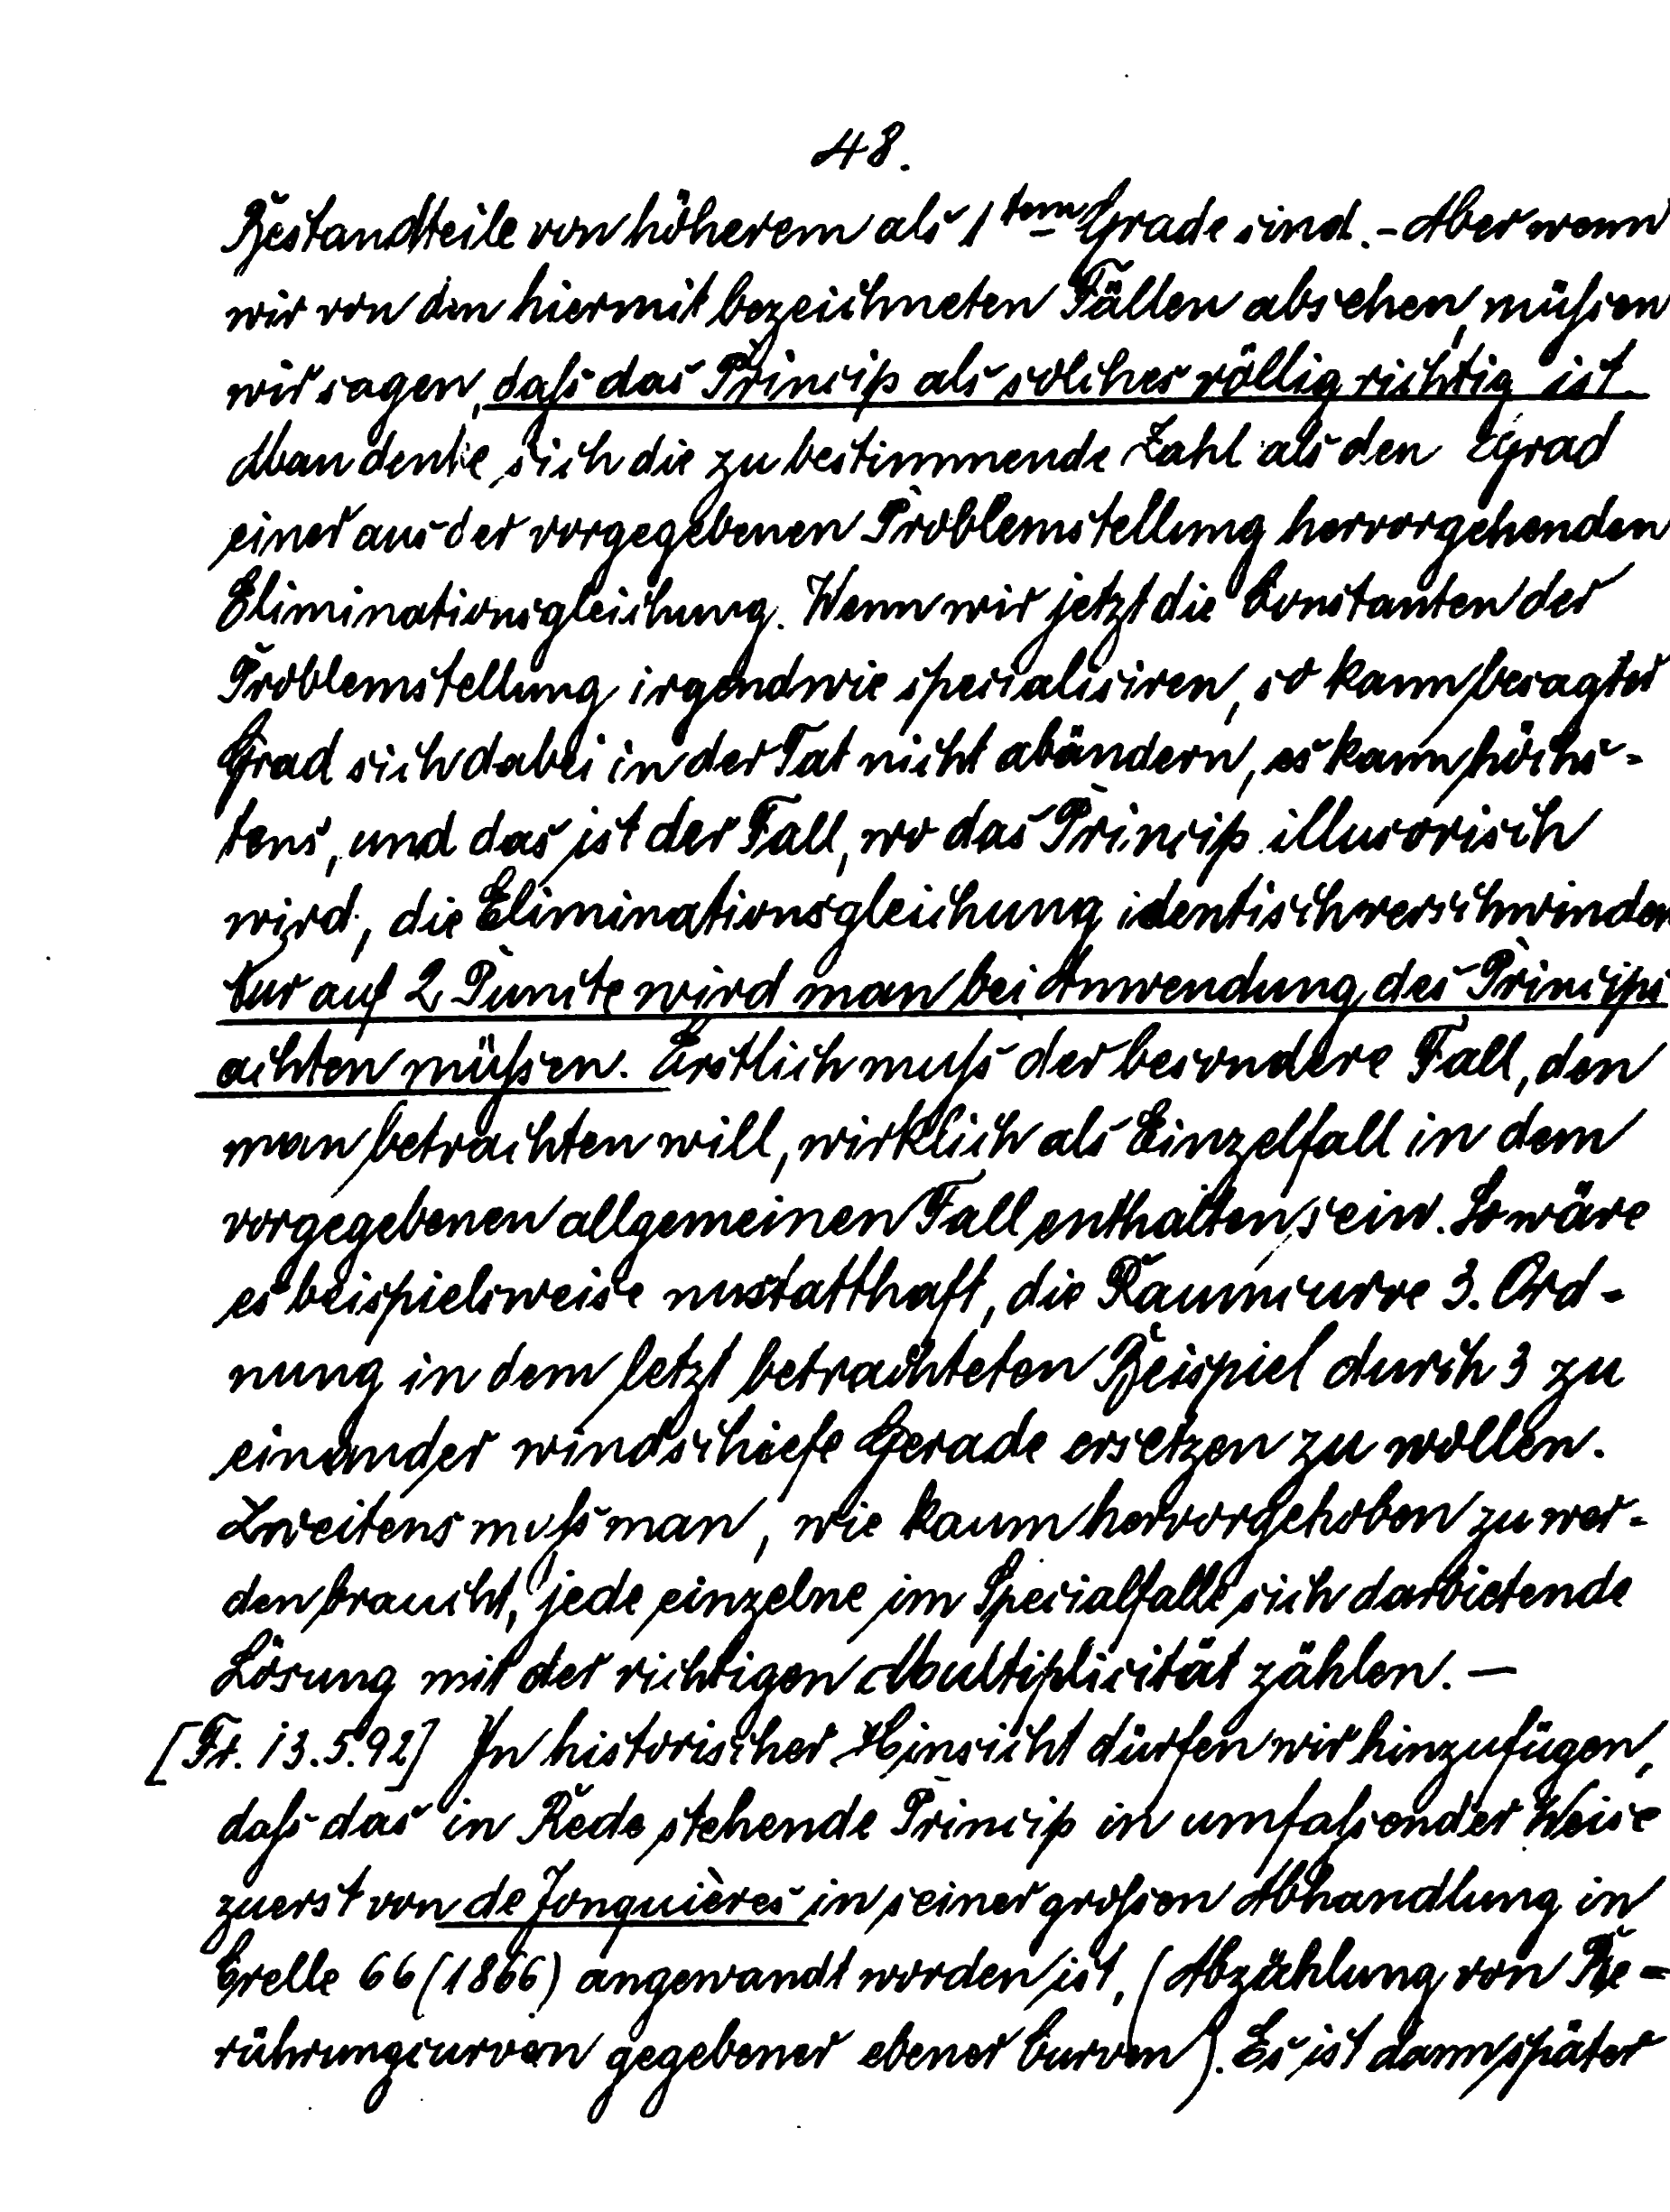 48.
Bestandteile von höherem als 1tem Grade sind. - Aber wenn
wir von den hiermit bezeichneten Fällen absehen, müssen
wir sagen, dass das Princip als solches völlig richtig ist.
Man denke sich die zu bestimmende Zahl als den Grad
einer aus der vorgegebenen Problemstellung hervorgehenden
Eliminationsgleichung. Wenn wir jetzt die Constanten der
Problemstellung irgendwie specialisiren, so kann besagter
Grad sich dabei in der Tat nicht abändern, es kann höchs-
tens, und das ist der Fall, wo das Princip illusorisch
wird, die Eliminationsgleichung identisch verschwinden
Nur auf 2 Puncte wird man bei Anwendung des Princips
achten müssen. Erstlich muss der besondere Fall, den
man betrachten will, wirklich als Einzelfall in dem
vorgegebenen allgemeinen Fall enthalten sein. So wäre
es beispielsweise unstatthaft, die Raumcurve 3. Ord-
nung in dem letzt betrachteten Beispiel durch 3 zu
einander windschiefe Gerade ersetzen zu wollen.
Zweitens muss man, wie kaum hervorgehoben zu wer-
den braucht, jede einzelne im Specialfalle sich darbietende
Lösung mit der richtigen Multiplicität zählen. —
[Fr. 13.5.92] In historischer Hinsicht dürfen wir hinzufügen,
dass das in Rede stehende Princip in umfassender Weise
zuerst von de Jonquières in seiner grossen Abhandlung in
Crelle 66 (1866) angewandt worden ist, (Abzählung von Be-
rührungscurven gegebener ebener Curven). Es ist dann später